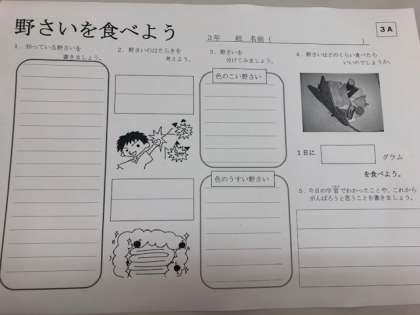 野さいを食べよう
3年　組　名前（　　　　）
3A
1．知っている野さいを
書きましょう。
2．野さいのはたらきを
考えよう。
3．野さいを
分けてみましょう。
色のこい野さい
色のうすい野さい
4．野さいはどのくらい食べたら
いいのでしょうか。
1日に　　　グラム
を食べよう。
5．今日の学習でわかったことや、これから
がんばろうと思うことを書きましょう。